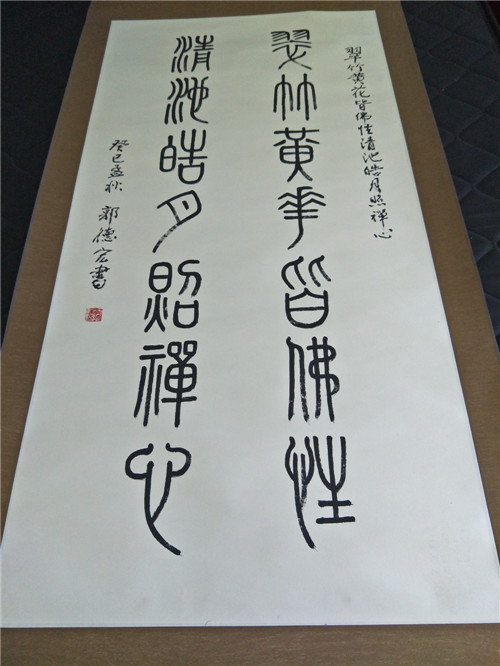 翠竹黄花皆佛性清池皓月照禅心
翠竹黄華皆佛性
清池皓月照禪心
癸巳孟秋 郭德宏書